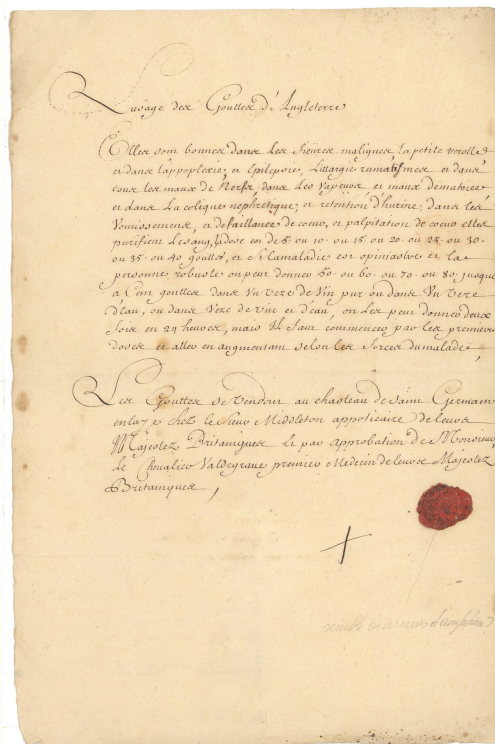 L'usage des Gouttes d'Angleterre
Elles sont bonnes dans les fiévres malignes la petite verolle
et dans lappoplexie, et Epilepsie, Littargie rumatismes et dans
tous les maux de Nerfs, dans les Vapeurs et maux de matrice
et dans La colique nephretique, et retention d'hurine, dans les
Vomissemens, et defaillance de coeur, et palpitation de coeur elles
purifient Le sang, la dose est de 5 ou 10 ou 15 ou 20 ou 25 ou 30
ou 35 ou 40 gouttes, et si la maladie est opiniastre et la
personne robuste on peut donner 50 ou 60 ou 70 ou 80 jusques
à Cent gouttes dans Un vere de Vin pur ou dans Un vere
d'Eau, ou dans Vere de vin et d'eau, on Les peut donner deux
fois en 24 heures, mais Il faut commencer par les premieres
doses et aller en augmentant selon les forces du malade,
Les Gouttes se Vendent au chasteau de Saint Germain
en laye chez le Sieur Middleton appoticaire de leurs
Majestez Britaniques et par approbation de Monsieur
Le Chevalier Valdegrave premier Medecin de leurs Majestez
Britaniques,